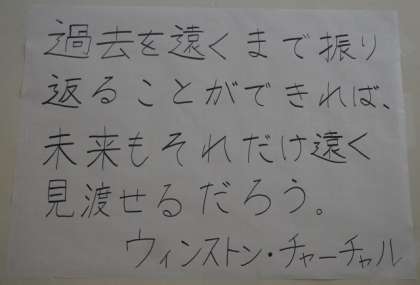 過去を遠くまで振り
返ることができれば、
未来もそれだけ遠く
見渡せるだろう。
ウィンストン・チャーチャル